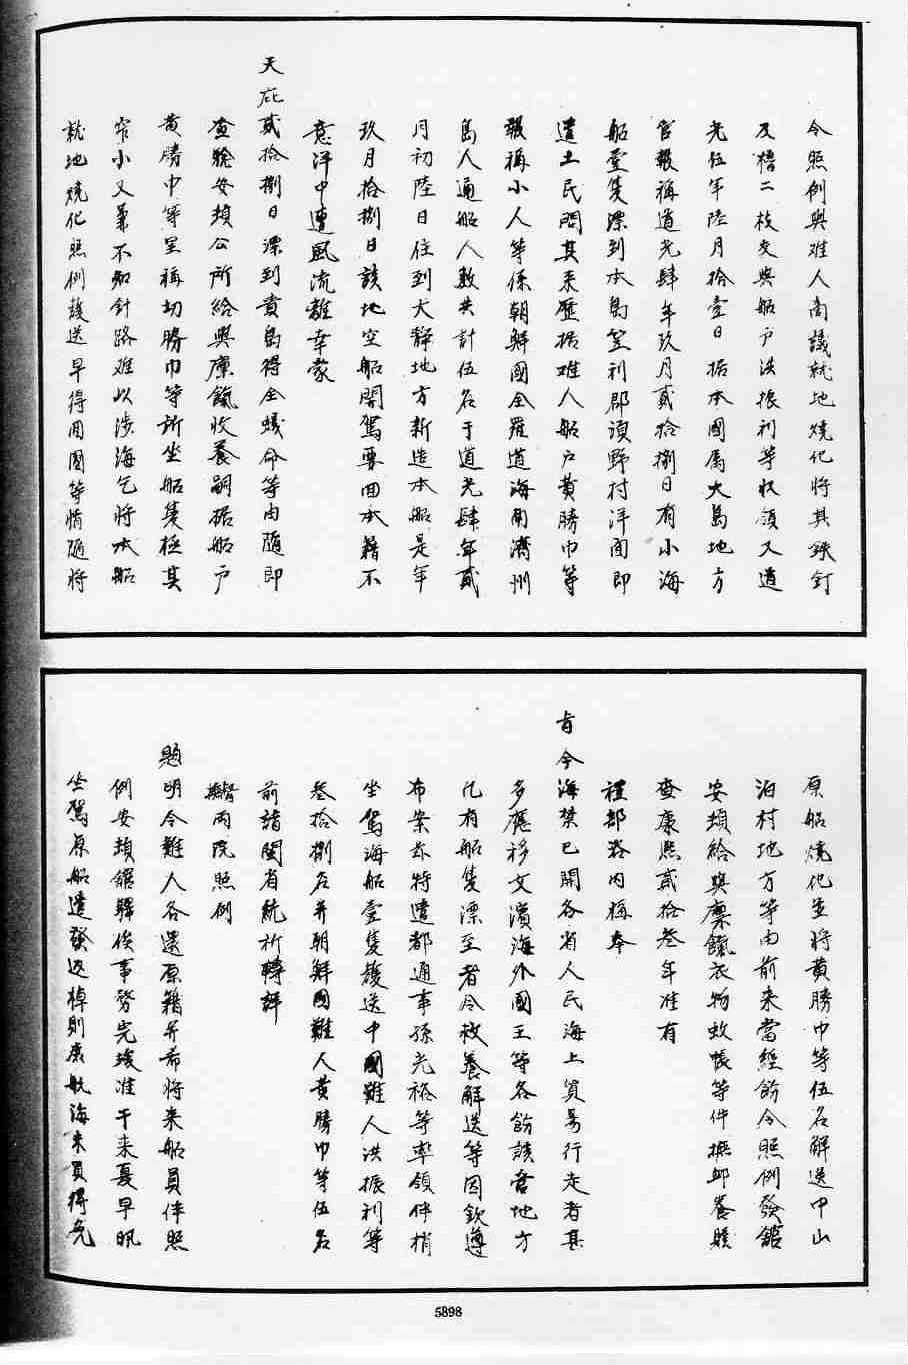 令照例與难人商議就地燒化將其鉄釘
及櫓二枝交與船户洪振利等收領又道
光伍年陸月拾壹日据本國属大島地方
官報稱道光肆年玖月貳拾捌日有小海
船壹隻漂到本島笠利郡須野村洋面即
遣土民問其来歷据难人船户黄勝巾等
報稱小人等係朝鮮國全羅道海南濟州
島人通船人数共計伍名于道光肆年貳
月初陸日往到大靜地方新造本船是年
玖月拾捌日該地空船開駕要回本籍不
意洋中遭風流離幸蒙
天庇貳拾捌日漂到貴島得全蟻命等由随即
查驗安頓公所給與廩餼收養嗣据船户
黄勝巾等呈稱切勝巾等所坐船隻極其
窄小又兼不知針路难以涉海乞將本船
就地燒化照例護送早得回國等情随將
原船燒化並將黄勝巾等伍名解送中山
泊村地方等由前来當經飭令照例發館
安頓給與廩餼衣物蚊帳等件撫卹養贍
查康熙貳拾叁年准有
禮部咨內稱奉
旨今海禁已開各省人民海上貿易行走者甚
多應移文濱海外國王等各飭該管地方
凡有船隻漂至者令收養解送等因欽遵
布案玆特遣都通事孫光裕等率領伴梢
坐駕海船壹隻護送中國難人洪振利等
叁拾捌名并朝鮮國難人黄勝巾等伍名
前詣閩省統祈轉詳
督兩院照例
題明令難人各還原籍并希將来船員伴照
例安頓館驛俟事務完竣准于来夏早帆
坐駕原船遣發返棹則庶航海末員得免
5898